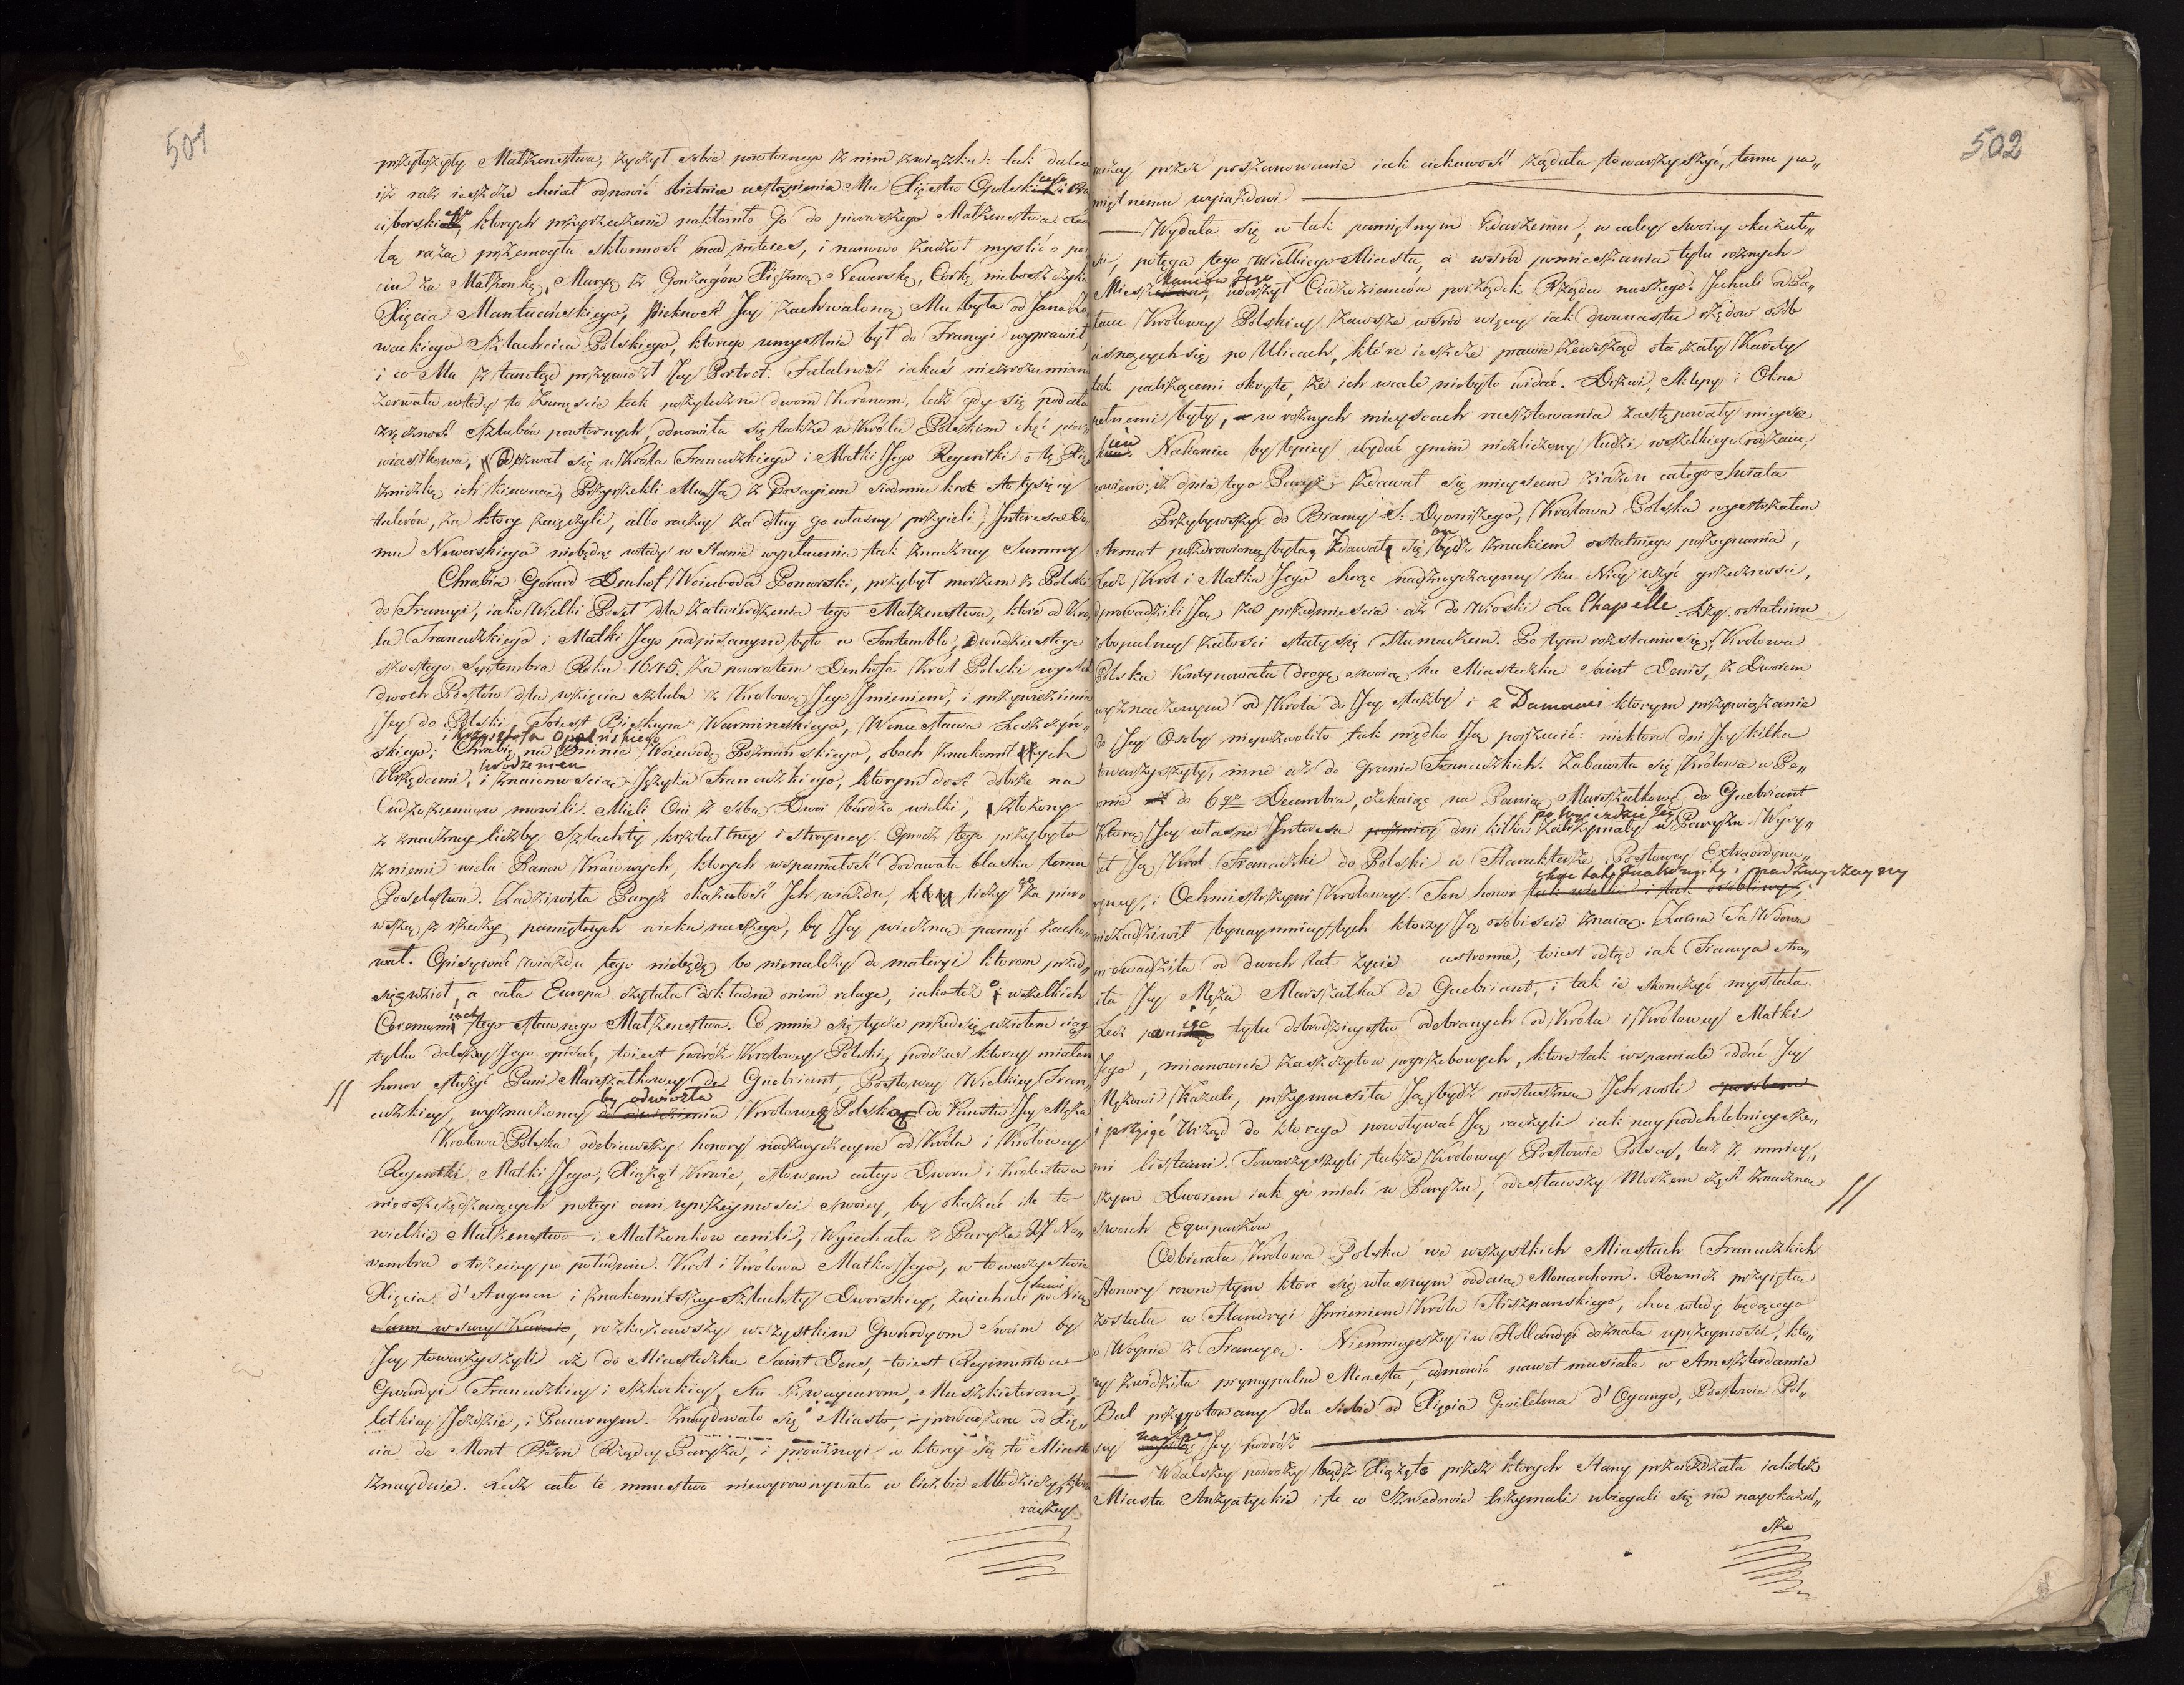 501
przyłożyły Małżeństwa, życzył sobie powtornego z nim związku: tak dalece
iż raz ieszcze chciał odnowić obietnice ustąpienia Mu Xięstw Opolskiego i Ra
ciborskiego, ktorych przyrzeczenie nakłoniło Go do pierwszego Małżenstwa. Lecz
tą razą przemogła skłonność nad interes, i nanowo zaczoł myslić o po
ciu za Małżonkę, Maryę z Gonzagów Xiężnę Newerską, Corkę nieboszczyka
Xięcia Mantuańskiego, Piekność Jey zachwaloną Mu była od Jana Za
wackiego Szlachcica Polskiego, ktorego umyslnie był do Francyi wyprawił
i co Mu z tamtąd przywiozł Jey Portret. Fatalność iakaś niezrozumiana
zerwała wtedy to Zamęscie tak pożyteczne dwom Koronom, lecz gdy się podała
zręczność Szlubów powtornych, odnowiła się także w Królu Polskim chęć pier
wiastkowa, Odezwał się u Krola Francuzkiego i Matki Jego Regentki o tę Xię
żniczkę ich kiewną, Przyrzekli Mu Ją z Posagiem siedmiu kroć sto tysięcy
talerów, za ktory zaręczyli, albo raczey za dług go własny przyieli; Interesa Do
mu Newerskiego niebędąc wtedy w stanie wypłacenia tak znaczney Summy
Chrabia Gerard Denhof Woiewoda Pomorski, przybył morzem z Polski
do Francyi, iako Wielki Poseł dla zatwierdzenia tego Małżenstwa, ktore od Kro
la Francuzkiego i Matki Jego podpisanym było w Fontemblo, Dwudziestego
szostego Septembra Roku 1645. Za powrotem Denhofa Król Polski wysłał
dwoch Posłów dla wzięcia szlubu z Krolową Jego Jmieniem, i przywiezienia
Jey do Polski. To iest Biskupa Warmińskiego, Wencesława Leszczyń„
i Krzysztofa Opalińskiego
skiego; Chrabię na Bninie Woiewodę Poznańskiego, oboch znakomitych
urodzeniem
Urzędami, i znaiomoscią Języka Francuzkiego, ktorym dość dobrze na
Cudzoziemcow mowili. Mieli Oni z sobą Dwor bardzo wielki, złożony
z znaczney liczby Szlachty kształtney i stroyney. Oprocz tego przybyło
z niemi wielu Panow Kraiowych, ktorych wspaniałość dodawała blasku temu
Poselstwu. Zadziwiła Paryż okazałość Jch wiazdu, liczy go za pierw
wszą z rzeczy pamiętnych wieku naszego, by Jey wieczną pamięć zacho„
wał. Opisywać wiazdu tego niebędę bo nienależy do materyi ktorom przed„
sięwzioł, a cała Europa czytała dokładne onim relacye, iako też o wszelkich
Ceremoniach tego sławnego Małżenstwa. Co mnie się tycze przedsięwziołem ciąg
tylko dalszey Jego opisać, toiest podróż Krolowey Polski, podczas ktorey miałem
honor służyć Pani Marszałkowey de Guebriant, Posłowey Wielkiey Fran„
by odwiozła
cuzkiey, wyznaczoney do odwiezienia Krolowę Polską do Panstw Jey Męża
Krolowa Polska odebrawszy honory nadzwyczayne od Krola i Krolowey
Regentki Matki Jego, Xiążąt Krwie, słowem całego Dworu i Krolestwa
nieoszczędzaiących potęgi ani uprzeymosci swoiey, by okazać ile to
wielkie Małżenstwo i Małżonkow cenili, Wyiechała z Paryża 27 No„
vembra o trzeciey po południu. Krol i Królowa Matka Jego, w towarzystwie
Xięcia d'Anguien i Znakomitszey Szlachty Dworskiey, Zaiechali sami po Nią
sami w swey Karecie, rozkazawszy wszystkim Gwardyom swoim by
Jey towarzyszyli aż do Miasteczka Saint Denes, toiest Regimentom
Gwardyi Francuzkiey i Szkockiey, stu Szwaycarom, Muszkieterom,
letkiey Jezdzie, i Pancernym. Znaydowało się i Miasto, prowadzone od Xię„
cia de Mont Bason Rządcy Paryża, i prowincyi w ktorey się to Miasto
znayduie. Lecz całe to mnostwo niewyrownywało w liczbie Młodzieży, ktora
raczey
502
raczey przez poszanowanie iak ciekawość żądała towarzyszyć, temu pa„
miętnemu wyiazdowi
— Wydała się w tak pamiętnym zdarzeniu, w całey swoiey okazało„
sci, potęga tego Wielkiego Miasta, a wsród pomieszania tylu rożnych
Mieszkancow Jego, uderzył Cudzoziemców porządek Rządu naszego. Jechali od Pa„
łacu Krolowey Polskiey zawsze wsród więcey iak dwunastu rzędow osób
cisnących się po Ulicach, które ieszcze prawie zewsząd otaczały Karety
tak patrzącemi okryte, że ich wcale niebyło widać. Drzwi, Sklepy i Okna
pełnemi były, w rożnych mieyscach rusztowania zastępowały mieysce
ien. Nakoniec by lepiey wydać gmin niezliczony ludzi wszelkiego rodzaiu,
powiem; iż dnia tego Paryż zdawał się mieyscem ziazdu całego Swiata
Przybywszy do Bramy S. Dyonizego, Krolowa Polska wystrzałem
Armat pozdrowioną była, Zdawał się on bydź znakiem ostatniego pożegnania,
Lecz Krol i Matka Jego chcąc nadzwyczayney ku Niey użyć grzeczności,
odprowadzili Ją za przedmiescia aż do Wioski La Chapelle. Łzy ostatnim
obopulney żałości stały się Tłumaczem. Po tym rozstaniu się, Krolowa
Polska kontynowała drogę swoią ku Miasteczku Saint Denis, z Dworem
wyznaczonym od Krola do Jey służby i z Damami ktorym przywiązanie
do Jey Osoby niepozwoliło tak prędko Ją porzucić: niektore dni Jey kilka
towarzyszyły, inne aż do Granic Francuzkich. Zabawiła się Krolowa w Pe„
onie do 6go Decembra, czekaiąc na Panią Marszałkowę de Guebriant
po wyiezdzie Jey
Ktorą Jey własne Interesa poźniey dni kilka zatrzymały w Paryżu. Wysy„
łał Ją Krol Francuzki do Polski w Harakterze Posłowey Extraordyna„
choć tak znakomity i nadzwyczayny
ryney, i Ochmistrzyni Krolowey. Ten honor tak wielki i tak osobliwy
niezadziwił bynaymniey tych ktorzy Ją osobiscie znaią. Zacna Ta Wdowa
prowadziła od dwoch lat życie ustronne, toiest odtąd iak Francya stra„
ciła Jey Męża Marszałka de Guebriant, i tak ie skonczyć myslała.
Lecz pamięć tylu dobrodzieystw odebranych od Krola i Krolowey Matki
Jego, mianowicie zaszczytow pogrzebowych, ktore tak wspaniale oddać Jey
Mężowi kazali, przymusiła Ją bydź posłuszną Jch woli
i przyiąć Urząd do ktorego powoływać Ją raczyli iak naypodchlebnieysze„
mi listami. Towarzyszyli także Krolowey Posłowie Polscy, lecz z mniey„
szym Dworem iak go mieli w Paryżu, odesławszy Morzem częsć znaczną
swoich Equipażów
Odbierała Krolowa Polska we wszystkich Miastach Francuzkich
Honory rowne tym ktore się własnym oddaią Monarchom. Rownież przyiętą
została w Flandryi Jmieniem Króla Hiszpanskiego, choc wtedy będącego
w Woynie z Francyą. Niemnieyszey i w Hollandyi doznała uprzeymosci, kto„
rey zwidziła pryncypalne Miasta, odmowić nawet musiała w Amszterdamie
Bal przygotowany dla Siebie od Xięcia Gwilelma d'Orange, Posłowie Pol„
scy naglili Jey podróż
— Wdalszey podroży bądź Xiążęta przez ktorych Stany przeiezdzała iakoteż
Miasta Anzyatyckie i te co Szwedowie trzymali ubiegali się na nayokazal„
sze